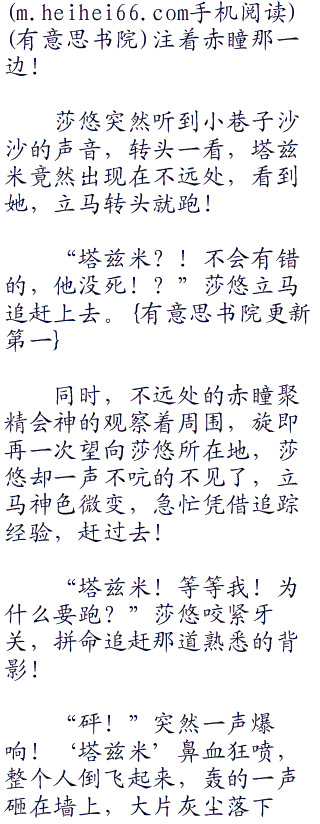 (m.heihei66.com手机阅读)
(有意思书院)注着赤瞳那一
边！
莎悠突然听到小巷子沙
沙的声音，转头一看，塔兹
米竟然出现在不远处，看到
她，立马转头就跑！
“塔兹米？！不会有错
的，他没死！？”莎悠立马
追赶上去。{有意思书院更新
第一}
同时，不远处的赤瞳聚
精会神的观察着周围，旋即
再一次望向莎悠所在地，莎
悠却一声不吭的不见了，立
马神色微变，急忙凭借追踪
经验，赶过去！
“塔兹米！等等我！为
什么要跑？”莎悠咬紧牙
关，拼命追赶那道熟悉的背
影！
“砰！”突然一声爆
响！‘塔兹米’鼻血狂喷，
整个人倒飞起来，轰的一声
砸在墙上，大片灰尘落下